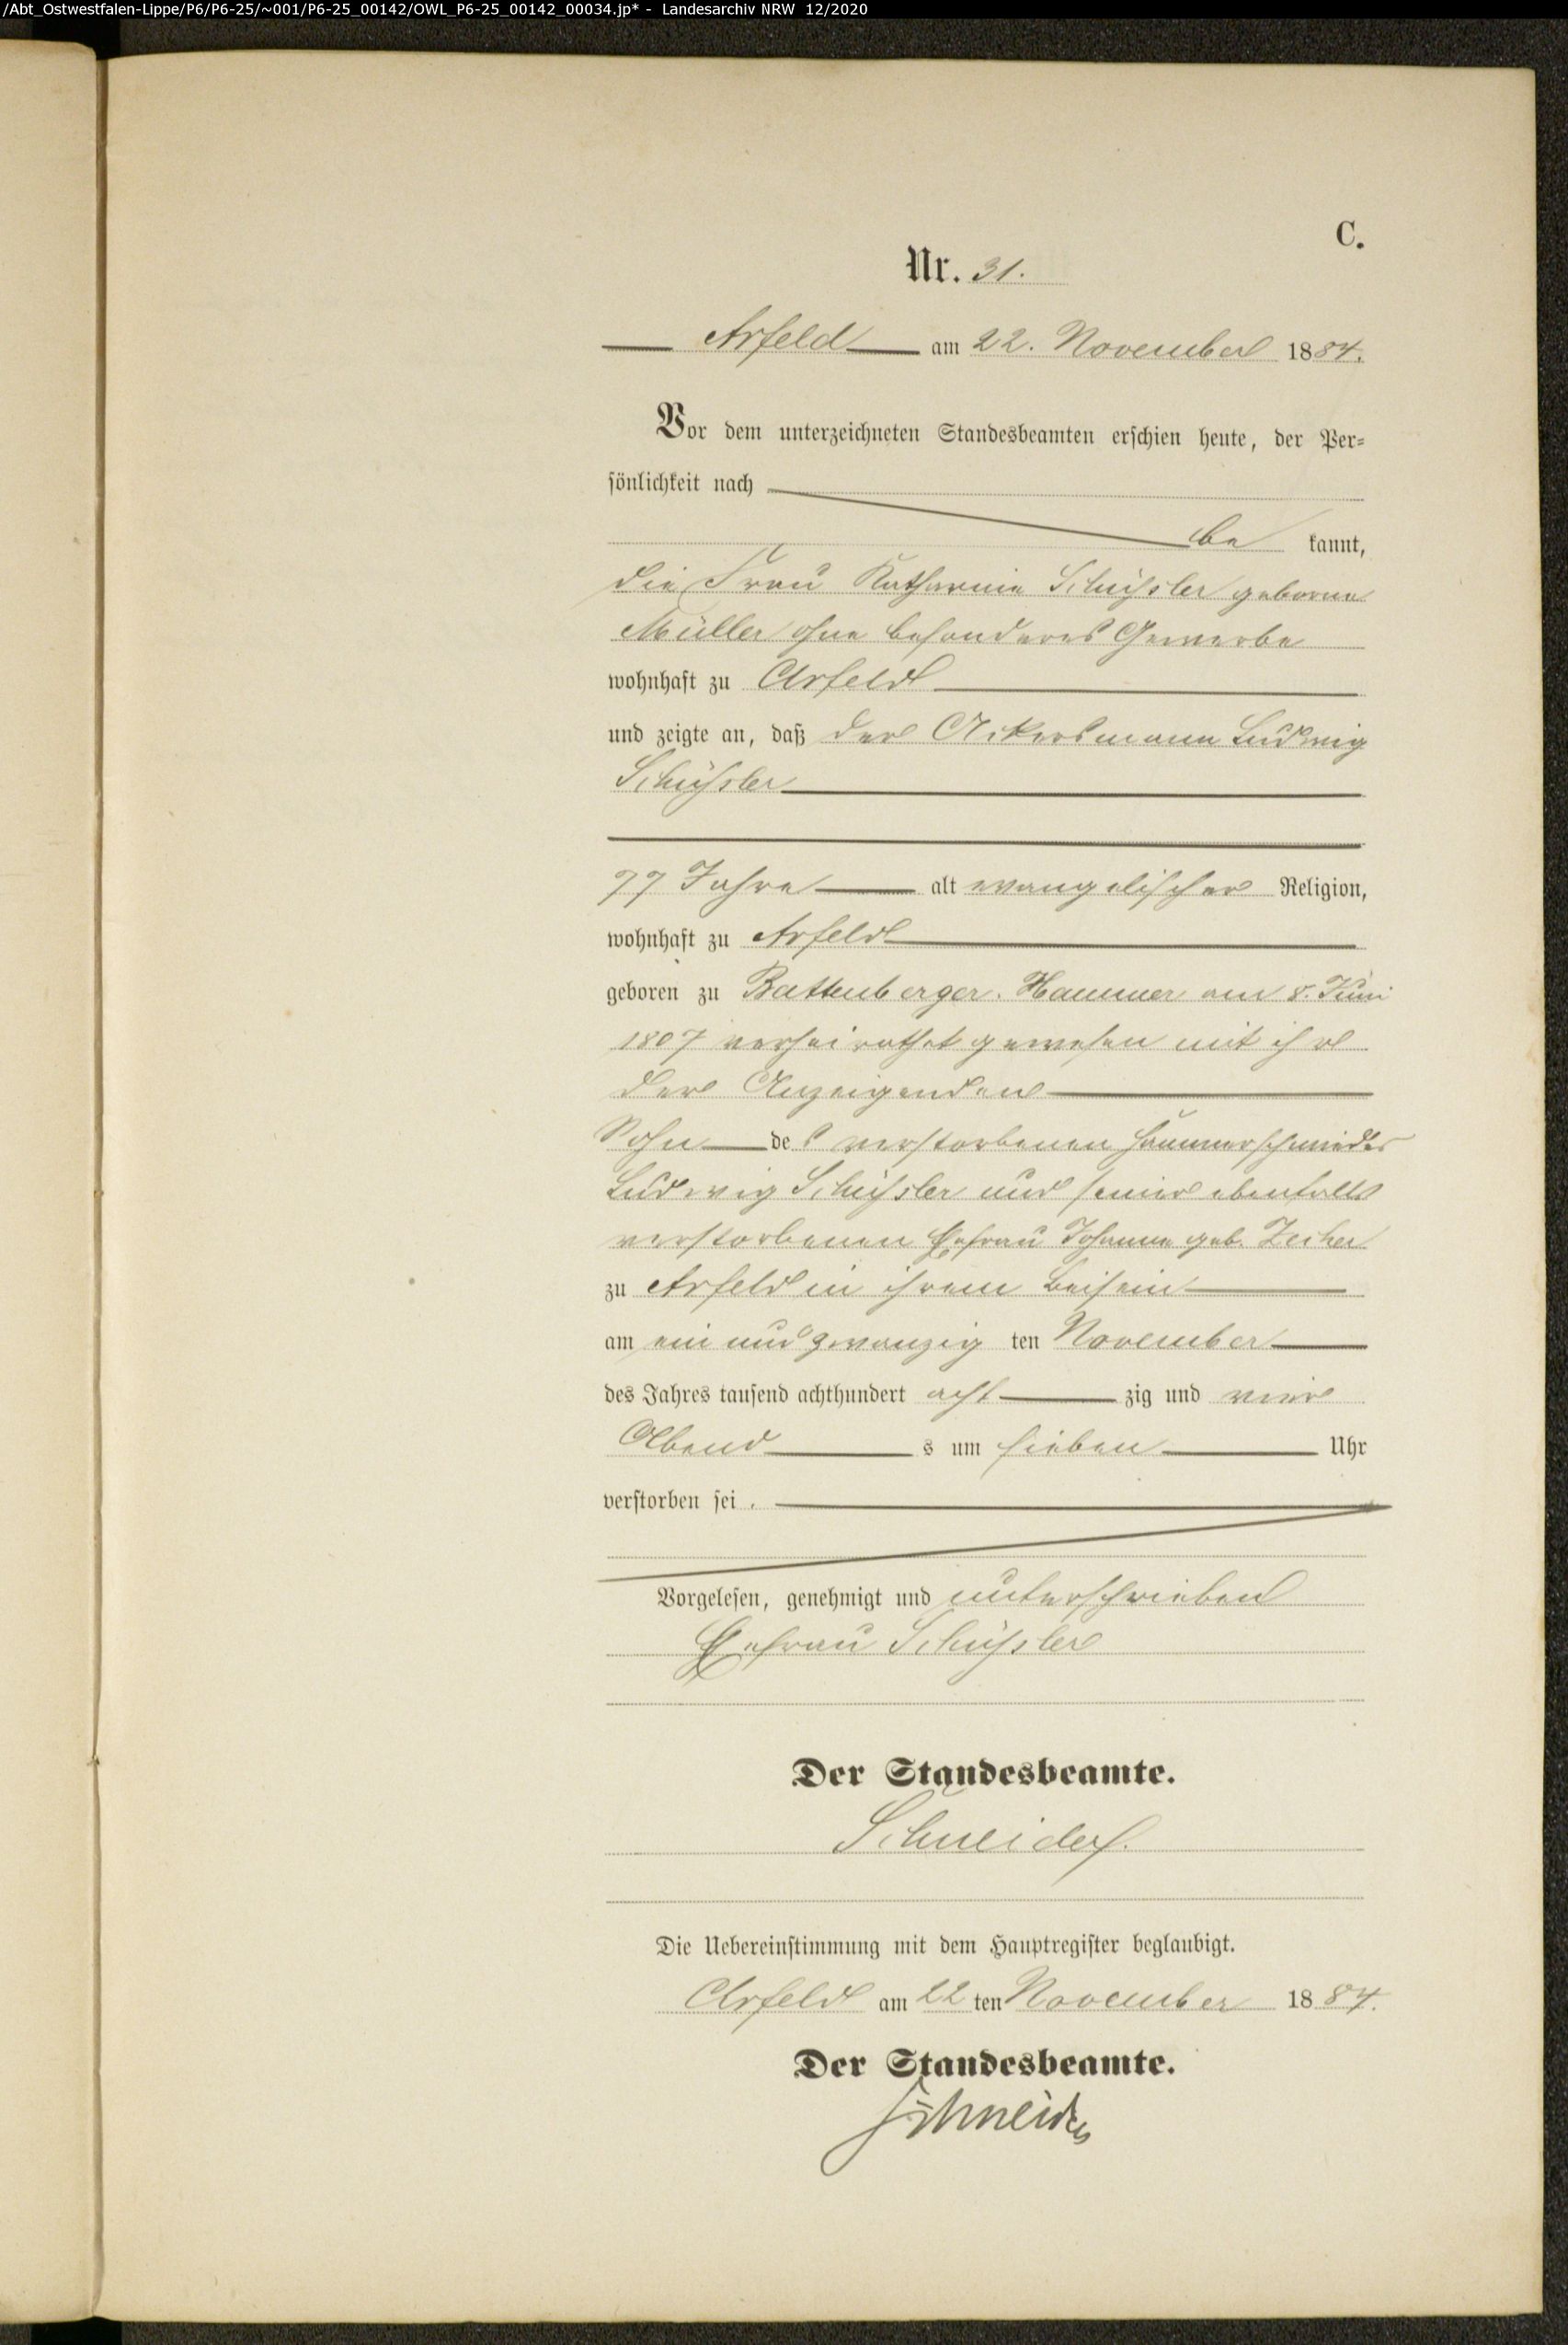 /Abt_Ostwestfalen-Lippe/P6/P6-25/~001/P6-25_00142/OWL_P6-25_00142_00034.jp* - Landesarchiv NRW 12/2020
C.
Nr. 31.
Arfeld am 22. November 1884.
Vor dem unterzeichneten Standesbeamten erschien heute, der Per-
sönlichkeit nach
be kannt,
die Frau Katharine Schüssler geborne
Müller ohne besonderes Gewerbe
wohnhaft zu Arfeld
und zeigte an, daß der Ackersmann Ludwig
Schüssler
77 Jahre alt evangelischer Religion,
wohnhaft zu Arfeld
geboren zu Battenberger Hammer am 8. Juni
1807 verheirathet gewesen mit ihr
der Anzeigenden
Sohn des verstorbenen Hammerschmiedes
Ludwig Schüssler und seiner ebenfalls
verstorbenen Ehefrau Johanne geb.
zu Arfeld in ihrem Beisein
am ein und zwanzig ten November
des Jahres tausend achthundert acht zig und vier
Abend s um sieben Uhr
verstorben sei.
Vorgelesen, genehmigt und unterschrieben
Ehefrau Schüssler
Der Standesbeamte.
Schneider.
Die Uebereinstimmung mit dem Hauptregister beglaubigt.
Arfeld am 22 ten November 1884.
Der Standesbeamte.
Schneider